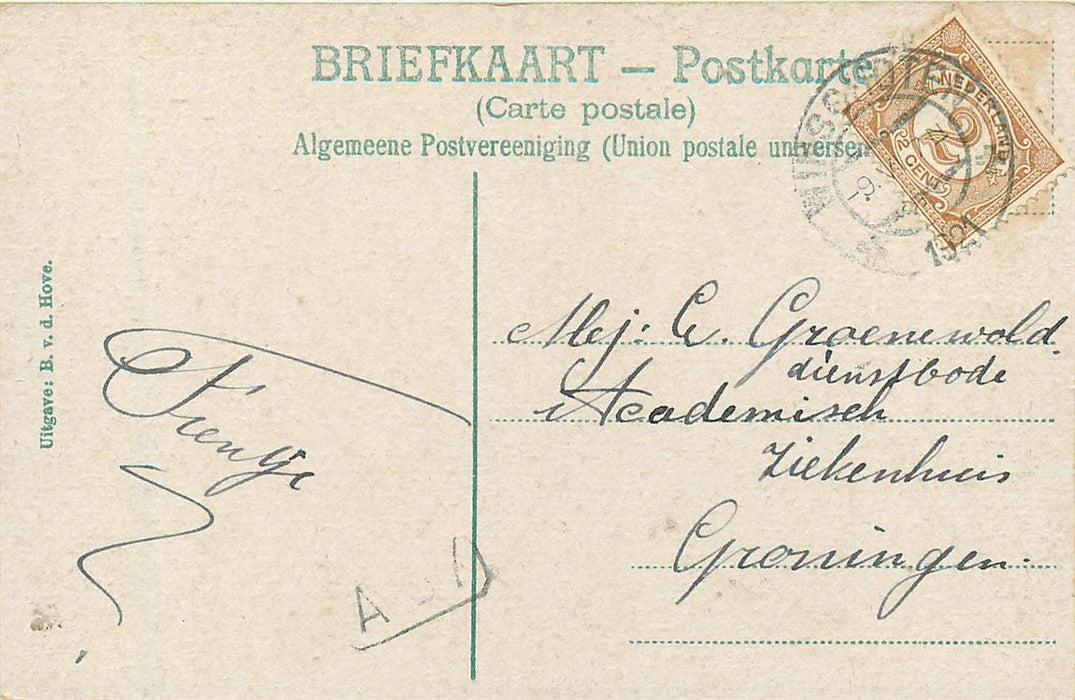 BRIEFKAART — Postkarte
(Carte postale)
Algemeene Postvereeniging (Union postale
NEDERLAND
2 CENT
2
WINSCHOTEN
Uitgave: B. v. d. Hove.
Mej: G. Groenewold.
dienstbode
Academisch
Ziekenhuis
Groningen.